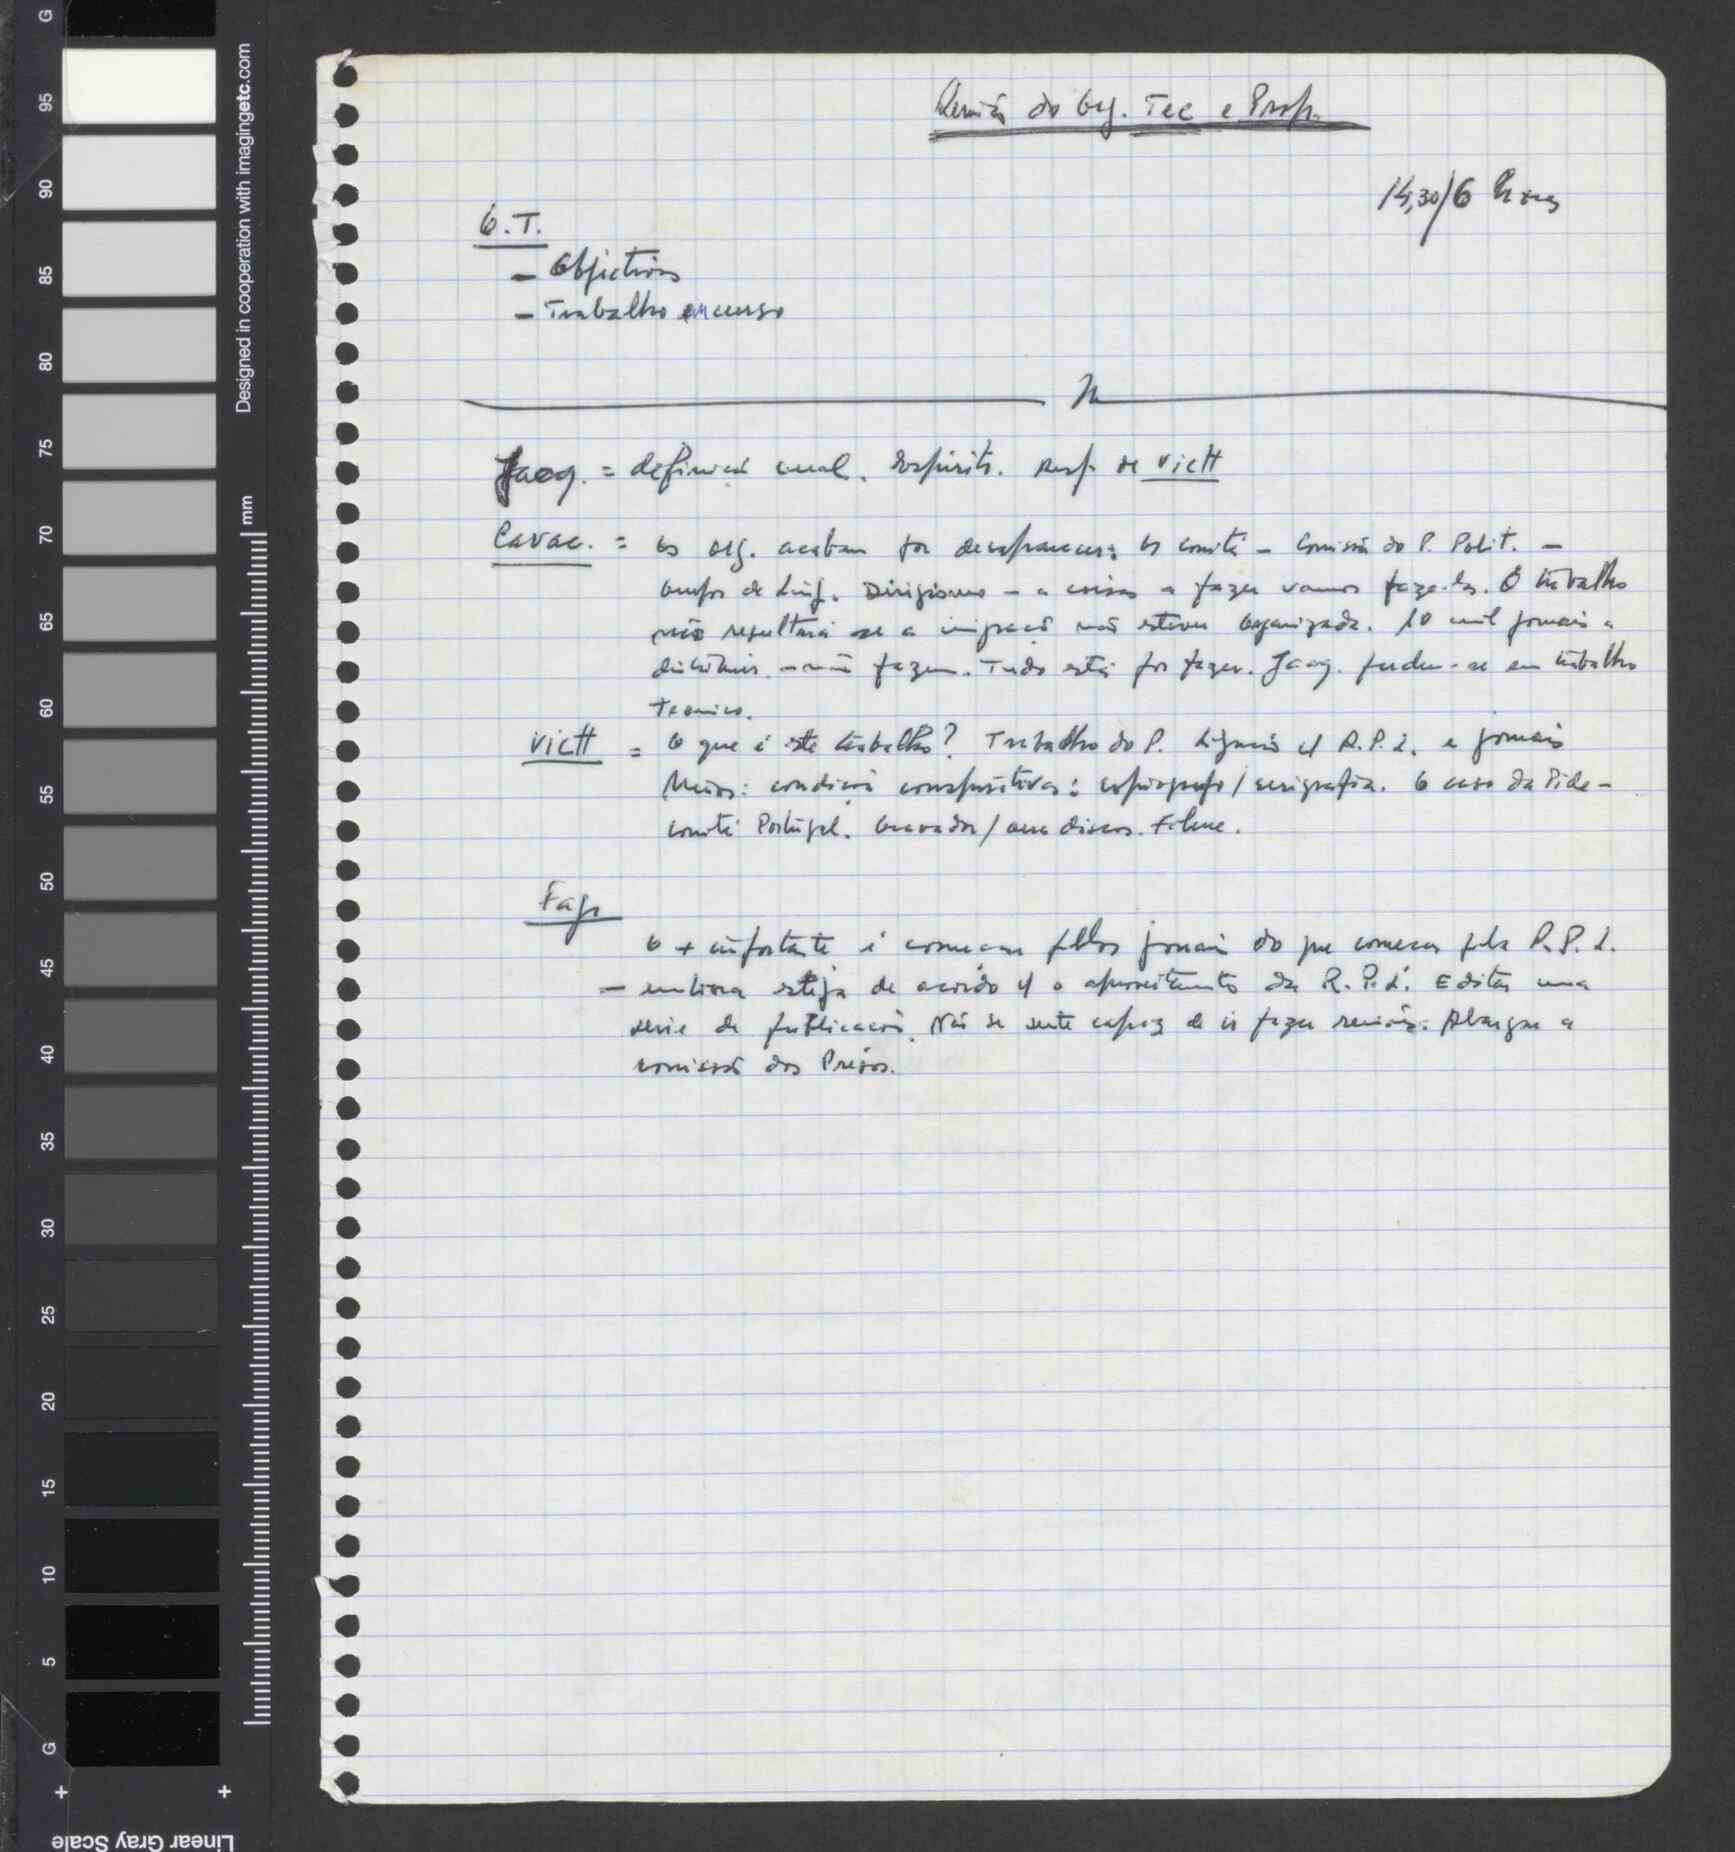 Reunião do Org. Tec e Prop.
14,30/6 horas
O.T.
- Objectivos
- Trabalho em curso
Jacq. = definição Resp. de VictH
Cavac. = Os org. acabam por desaparecer: Os comité - Comissão do P. Polit. -
de Líng. Dirigismo - a coisas a fazer vamos fazê-las. O trabalho
não resultará se a imigração não estiver organizada. 10 mil jornais a
distribuir - não fazem. Tudo está por fazer. Jacq. perdeu-se em trabalho
Tecnico.
VictH = O que é este trabalho? Trabalho do P. c/ R.P.L. e jornais
Meios: condições copiografo / serigrafia. O caso da Pide -
comité Portugal. Gravador / discos. Filme.
Fap
O + importante é começar pelos jornais do que começar pela R.P.L.
- embora esteja de acordo c/ o aproveitamento da R.P.L. Editar uma
serie de publicações. Não se sente capaz de ir fazer reuniões. Alargar a
comissão dos Presos.
Designed in cooperation with imagingetc.com
mm
G
95
90
85
80
75
70
65
60
55
50
45
40
35
30
25
20
15
10
5
G
Linear Gray Scale